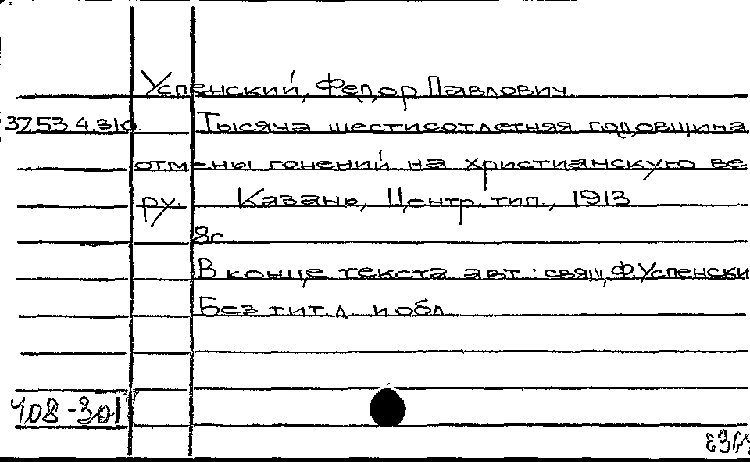 Успенский, Федор Павлович
37.53.4.310 Тысяча шестисотлетняя годовщина
отмены гонений на христианскую ве
ру. Казань, Центр. тип., 1913
8с
В конце текста авт.: свящ. Ф. Успенски
Без тит. л. и обл.
408-301